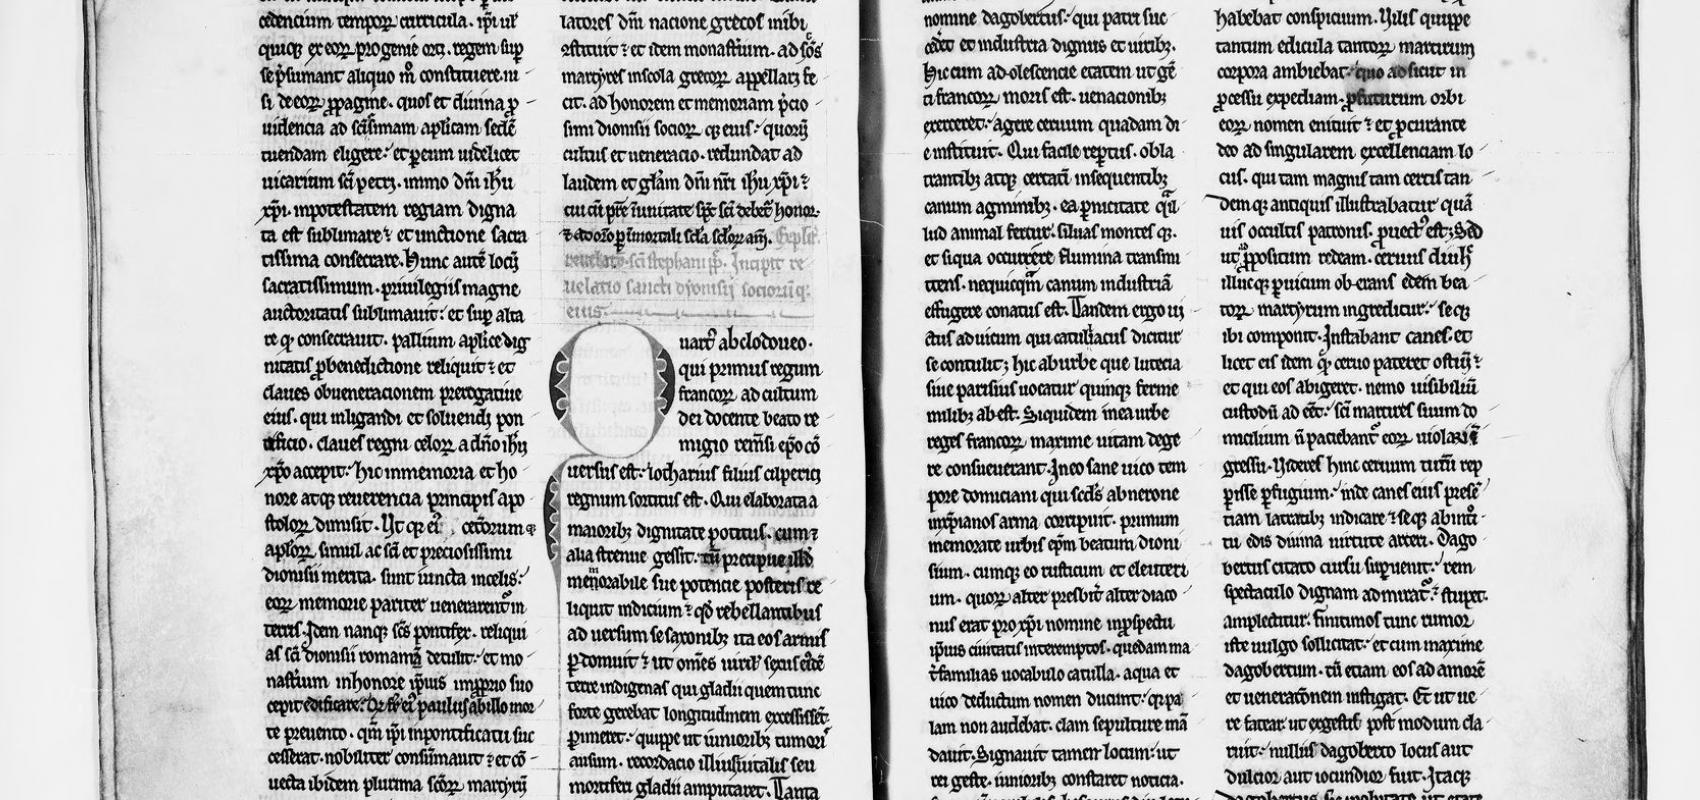 cedencium tempoꝝ curricula. ip̄i uł
quicq; ex eoꝝ progenie orti. regem sup
se p̄sumant aliquo m̊ constituere. ni
si de eoꝝ ꝓpagine. quos et diuina ꝓ
uidencia ad sc̄issimam aplicam sedē
tuendam eligere: et p̲ eum uidelicet
uicarium sc̄i petri. immo dn̄i ih̄u
xp̄i. in potestatem regiam digna
ta est sublimare: et unctione sacra
tissima consecrare. Hunc autē locū
sacratissimum. priuilegiis magne
auctoritatis sublimauit: et sup̲ alta
re q̲ consecrauit. pallium ap̄lice dig
nitatis ꝓ benedictione reliquit: et
claues ob ueneracionem prerogatiue
eius. qui in ligandi et soluendi pon
tificio. claues regni celoꝝ a dn̄o ih̄u
xp̄o accepit: hic in memoria et ho
nore atq; reuerencia principis apo
stoloꝝ dimisit. Ut q; ei⁹ ceteroꝝ
ap̄loꝝ simul ac sc̄i et preciosissimi
dionisii merita. sunt iuncta in celis:
eoꝝ memorie pariter uenerarent᷑ in
terris. Idem nanq; sc̄s pontifex. reliqui
as sc̄i dionisii romam detulit: et mo
nasterium in honore ip̄ius in proprio suo
cepit edificare. paulus ab illo mor
te preuento. qm̄ ip̄i in pontificatu suc
cesserat. nobiliter consūmauit: et cō
uecta ibidem plurima sc̄oꝝ martyrū
latores dn̄i nacione grecos inibi
ɔstituit: et idem monastīum. ad sc̄os
martyres in scola grecoꝝ appellari fe
cit. ad honorem et memoriam p̄cio
simi dionisii socioꝝ q; eius: quorū
cultus et ueneracio. redundat ad
laudem et glām dn̄i nr̄i ih̄u xp̄i:
cui cū pr̄e in unitate sp̄c sc̄i debet᷑ honor.
p̲ immortalia scl̄a scl̄oꝝ am̄. Explic̄.
reuelatio. sc̄i stephani pp̄. Incipit re
uelatio sancti dyonisij sociorū q:
eius.
Quart⁹ a bclodoueo.
qui primus regum
francoꝝ ad cultum
dei docente beato re
migio remēsi ep̄o cō
uersus est: lotharius filius cilperici
regnum sortitus est. Qui elaborata a
maiorib; dignitate potitus. cum
alia strenue gessit. tū precipue illd̄
memorabile sue potencie posteris re
liquit indicium: qd̄ rebellantibus
ad uersum se saxonib; ita eos armis
p̲domuit: ut om̄es uiril̄ sexus eidē
terre indigenas qui gladii quem tunc
forte gerebat longitudinem excessisset.
p̲imeret: quippe ut iuniorib; tumorī
ausum. recordacio illius uitalis seu
mortiferi gladii amputaret. Tanta
nomine dagobertus: qui patri suc
cederet et industria dignus et uirib;.
Hic cum adolescencie etatem ut gē
ti francoꝝ moris est. uenacionib;
exerceret: agere ceruum quadam di
e instituit. Qui facile rep̲tus. obla
trantib; atq; certatī insequentib;
canum agminib;. ea p̲nicitate qua il
lud animal fertur: siluas montes q;.
et siqua occurrere flumina transmi
ttens. nequicq̄m canum industriā
effugere conatus est. Tandem ergo uī
ctus ad uicum qui catulliacus dicitur
se contulit; hic ab urbe que lutecia
siue parisius uocatur quinq; ferme
milib; abest. Siquidem in ea urbe
reges francoꝝ maxime uitam dege
re consueuerant. In eo sane uico tem
pore domiciani qui sed̄s a nerone
in xp̄ianos arma corripuit. primum
memorate urbis ep̄m beatum dioni
sium. cumq; eo rusticum et eleuteri
um. quoꝝ alter presbit̄ alter diaco
nus erat pro xp̄i nomine in prospectu
ip̄ius ciuitatis interemptos. quedam ma
t̄familias uocabulo catulla. aqua et
uico deductum nomen ducunt: q; pa
lam non audebat. clam sepulture mā
dauit. Signauit tamen locum: ut
rei geste. iuniorib; constaret noticia.
habebat conspicuum. Uilis quippe
tantum edicula tantoꝝ martirum
corpora ambiebat: quo ad sicut in
ꝓcessu expediam. ꝓfuturum orbi
eoꝝ nomen enituit: et ꝓcurante
deo ad singularem excellenciam lo
cus. qui tam magnis tam certis tan
demq; antiquis illustrabatur quā
uis occultis patronis. ꝓuect⁹ est; Sed
ut ꝓpositum redeam. ceruus
illucq; p̲ uicum oberrans edem bea
toꝝ martyrum ingreditur: seq;
ibi componit. Instabant canes. et
licet eis idem q̊ ceruo pateret ostiū:
et qui eos abigeret. nemo uisibiliū
custodū adēēt: sc̄i martires suum do
micilium n̄ paciebant᷑ eoꝝ uiolari
gressu. Uideres hinc ceruum tutū rep
perisse p̲fugium: inde canes eius presē
tiam latratib; indicare: seq; ab intro
tu edis diuina uirtute arceri. Dago
bertus citato cursu sup̲uenit: rem
spectaculo dignam admirat᷑. stupet.
amplectitur: finitimos tunc rumor
iste uulgo sollicitat: et cum maxime
dagobertum. tū etiam eos ad amorē
et ueneratōnem instigat. Et ut ue
re fatear ut ex gestis post modum cla
ruit: nullus dagoberto locus aut
dulcior aut iocundior fuit. Itaq;